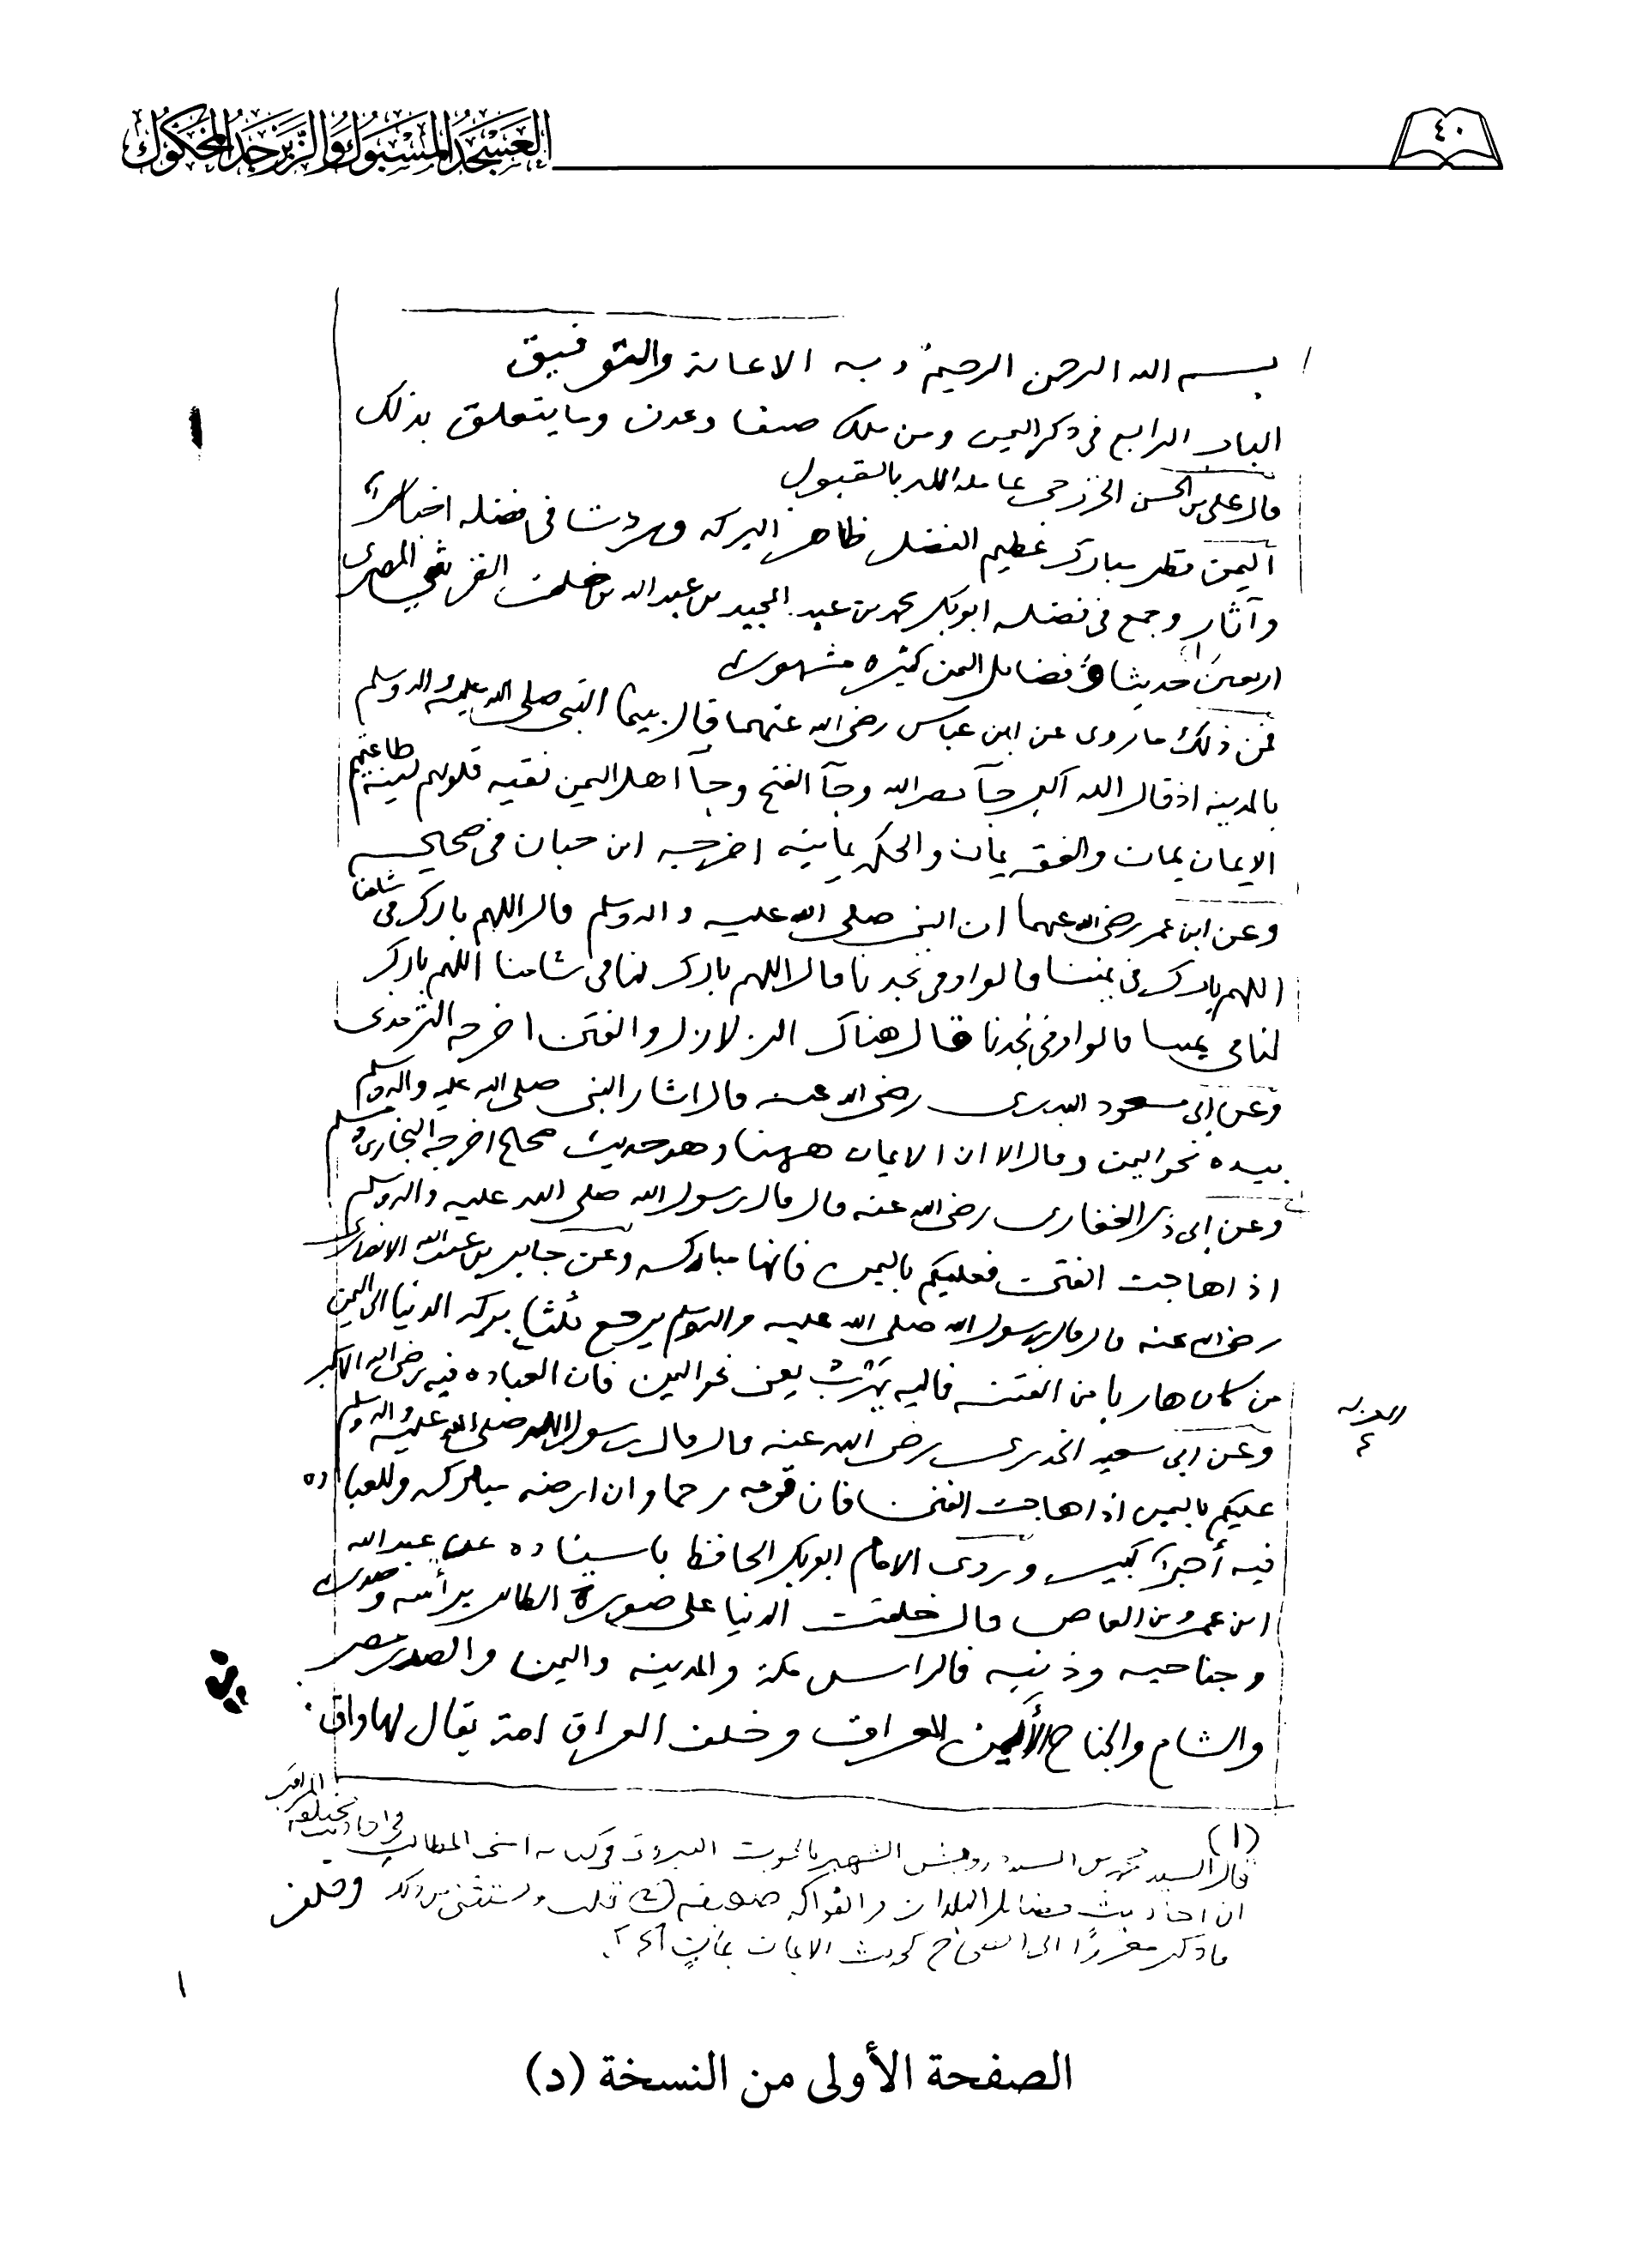 ٤٠
العسجد المسبوك والزبرجد المحكوك
بسم الله الرحمن الرحيم وبه الاعانة والتوفيق
الباب الرابع في ذكر اليمن ومن ملك صنعا وعدن وما يتعلق بذلك
قال علي بن الحسن الخزرجي عامله الله بالقبول
اليمن قطر مبارك عظيم الفضل ظاهر البركه وردت في فضله اخبار
وآثار وجمع في فضله ابو بكر محمد بن عبد المجيد بن عبد الله بن خلف القرشي المصري
اربعين حديثا (١) وفضائل اليمن كثيره مشهوره
فمن ذلك ما روى عن ابن عباس رضي الله عنهما قال بينما النبي صلى الله عليه واله وسلم
بالمدينه اذ قال الله اكبر جآ نصر الله وجآ الفتح وجآ اهل اليمن نقيه قلوبهم لينه طاعتهم
الايمان يمان والفقه يمان والحكمه يمانيه اخرجه ابن حبان في صحيحه
وعن ابن عمر رضي الله عنهما ان النبي صلى الله عليه واله وسلم قال اللهم بارك في شامنا
اللهم بارك في يمننا قالوا وفي نجدنا قال اللهم بارك لنا في شامنا اللهم بارك
لنا في يمننا قالوا وفي نجدنا قال هناك الزلازل والفتن اخرجه الترمذي
وعن ابي مسعود البدري رضي الله عنه قال اشار النبي صلى الله عليه واله وسلم
بيده نحو اليمن وقال الا ان الايمان ههنا وهو حديث صحيح اخرجه البخاري ومسلم
وعن ابي ذر الغفاري رضي الله عنه قال قال رسول الله صلى الله عليه واله وسلم
اذا هاجت الفتن فعليكم باليمن فانها مباركه وعن جابر بن عبد الله الانصاري
رضي الله عنه قال قال رسول الله صلى الله عليه واله وسلم يرجع ثلثا بركه الدنيا الى اليمن
من كان هاربا من الفتن فاليه يهرب يعني نحو اليمن فان العباده فيه رضى الله الاكبر
وعن ابي سعيد الخدري رضي الله عنه قال قال رسول الله صلى الله عليه واله وسلم
عليكم باليمن اذا هاجت الفتن فان قومه رحما وان ارضه مباركه وللعباده
فيه أجرا كبير وروى الامام ابو بكر الحافظ باسناده عن عبد الله
ابن عمرو بن العاص قال خلقت الدنيا على صورة الطائر برأسه وصدره
وجناحيه وذنبه فالراس مكة والمدينه واليمن والصدر مصر
والشام والجناح الأيمن العراق وخلف العراق امة يقال لها واق
(١)
قال السيد محمد بن السيد درويش الشهير بالحوت البيروتي في كتابه اسنى المطالب في احاديث مختلفة المراتب
ان احاديث فضائل البلدان والفواكه ضعيفه قلت ويستثنى من ذلك
وخلف
ما ذكر معزوًا الى الصحاح كحديث الايمان يمانٍ
١
الصفحة الأولى من النسخة (د)